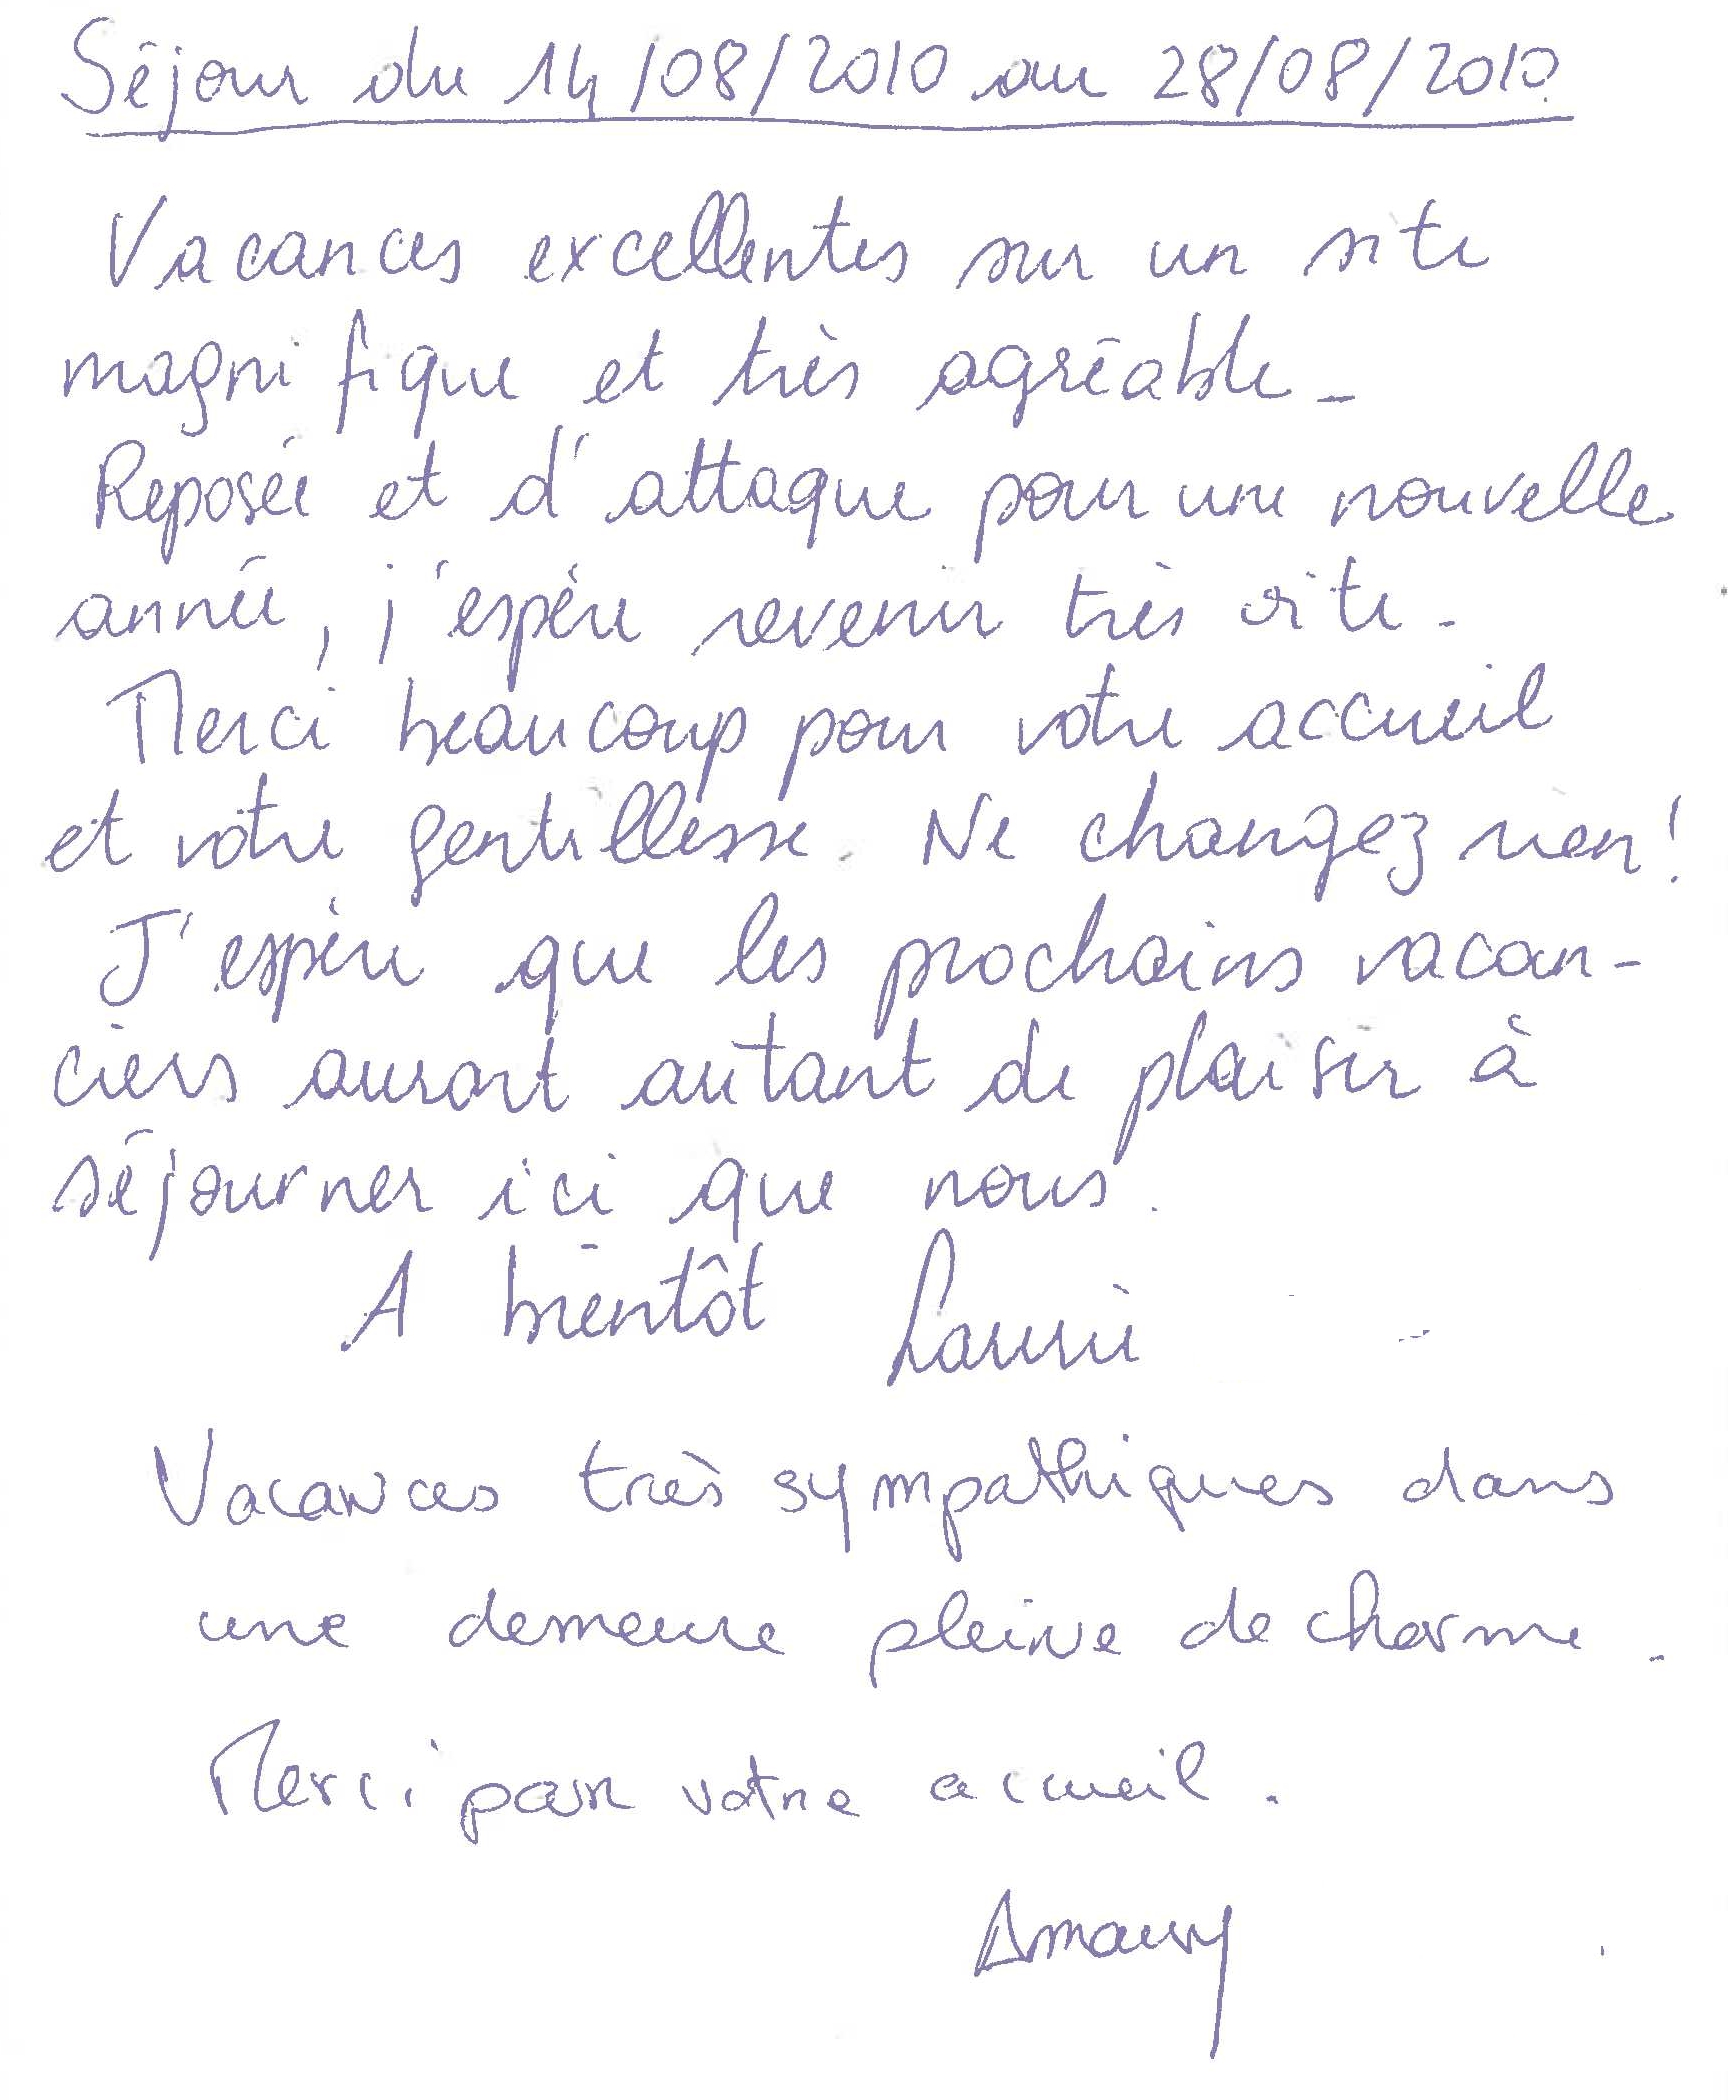 Séjour du 14/08/2010 au 28/08/2010
Vacances excellentes sur un site
magnifique et très agréable_
Reposée et d'attaque pour une nouvelle
année, j'espère revenir très vite.
Merci beaucoup pour votre accueil
et votre gentillesse. Ne changez rien!
J'espère que les prochains vacan-
ciers auront autant de plaisir à
séjourner ici que nous.
A bientôt Laurie
Vacances très sympathiques dans
une demeure pleine de charme_
Merci pour votre accueil.
Amaury